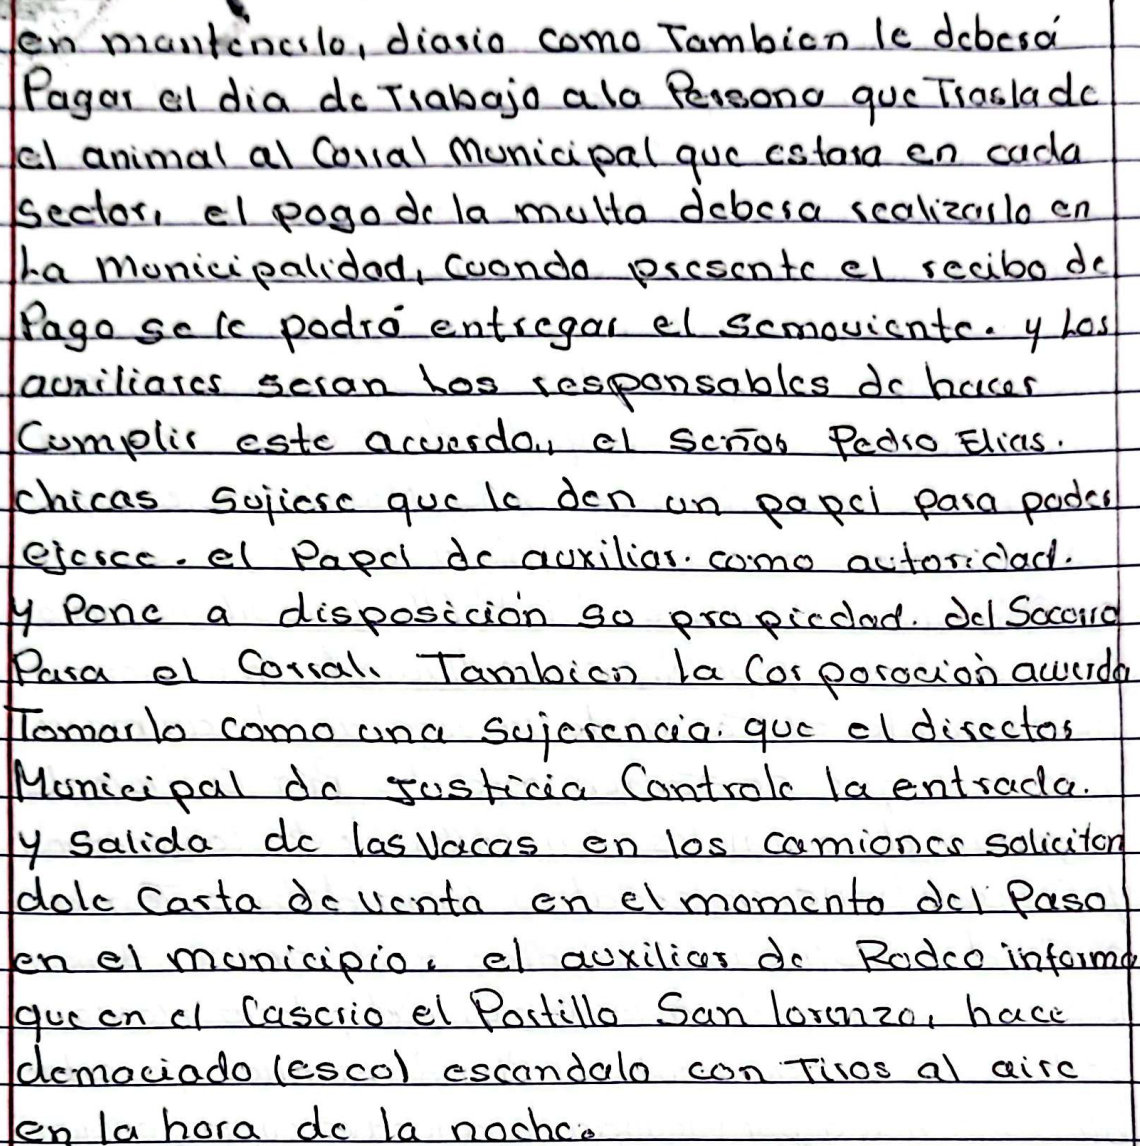 en mantenerlo, diario como Tambien le deberá
Pagar el dia de Trabajo a la Persona que Traslade
el animal al Corral Municipal que estara en cada
sector, el pago de la multa debera realizarlo en
La Municipalidad, Cuando presente el recibo de
Pago se le podrá entregar el semoviente. y Los
auxiliares seran Los responsables de hacer
Cumplir este acuerdo,, el señor Pedro Elias.
chicas Sujiere que le den un papel para poder
ejerce. el Papel de auxiliar. como autoridad.
y Pone a disposición so propiedad. del Socorro
Para el Corral. Tambien la Corporación acuerda
Tomarlo como una sujerencia. que el director
Municipal de Justicia Controle la entrada.
y salida de las Vacas en los camiones soliciten
dole Carta de venta en el momento del Paso
en el municipio. el auxiliar de Rodeo informa
que en el Caserio el Portillo San lorenzo, hace
demaciado (esco) escandalo con Tiros al aire
en la hora de la noche.